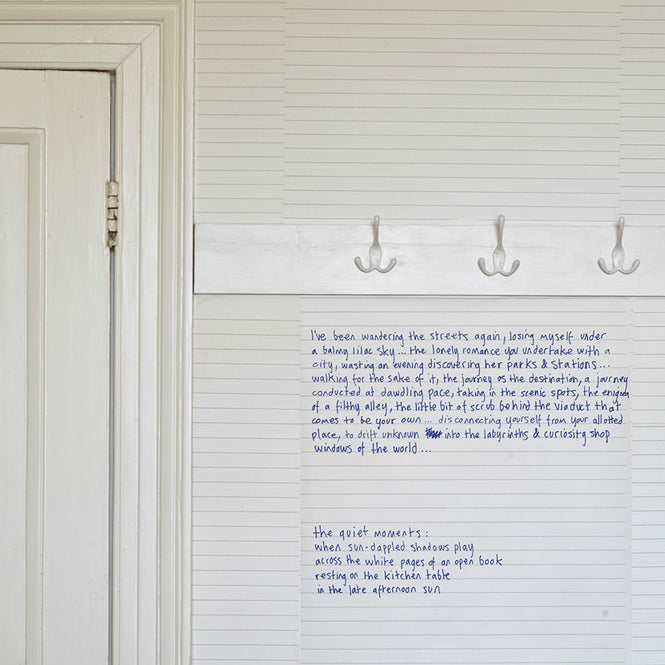 I've been wandering the streets again, losing myself under
a balmy lilac sky... the lonely romance you undertake with a
city, wasting an evening discovering her parks & stations...
walking for the sake of it, the journey as the destination, a journey
conducted at dawdling pace, taking in the scenic spots, the enigma
of a filthy alley, the little bit of scrub behind the viaduct that
comes to be your own... disconnecting yourself from your allotted
place, to drift unknown into the labyrinths & curiosity shop
windows of the world...
the quiet moments:
when sun-dappled shadows play
across the white pages of an open book
resting on the kitchen table
in the late afternoon sun